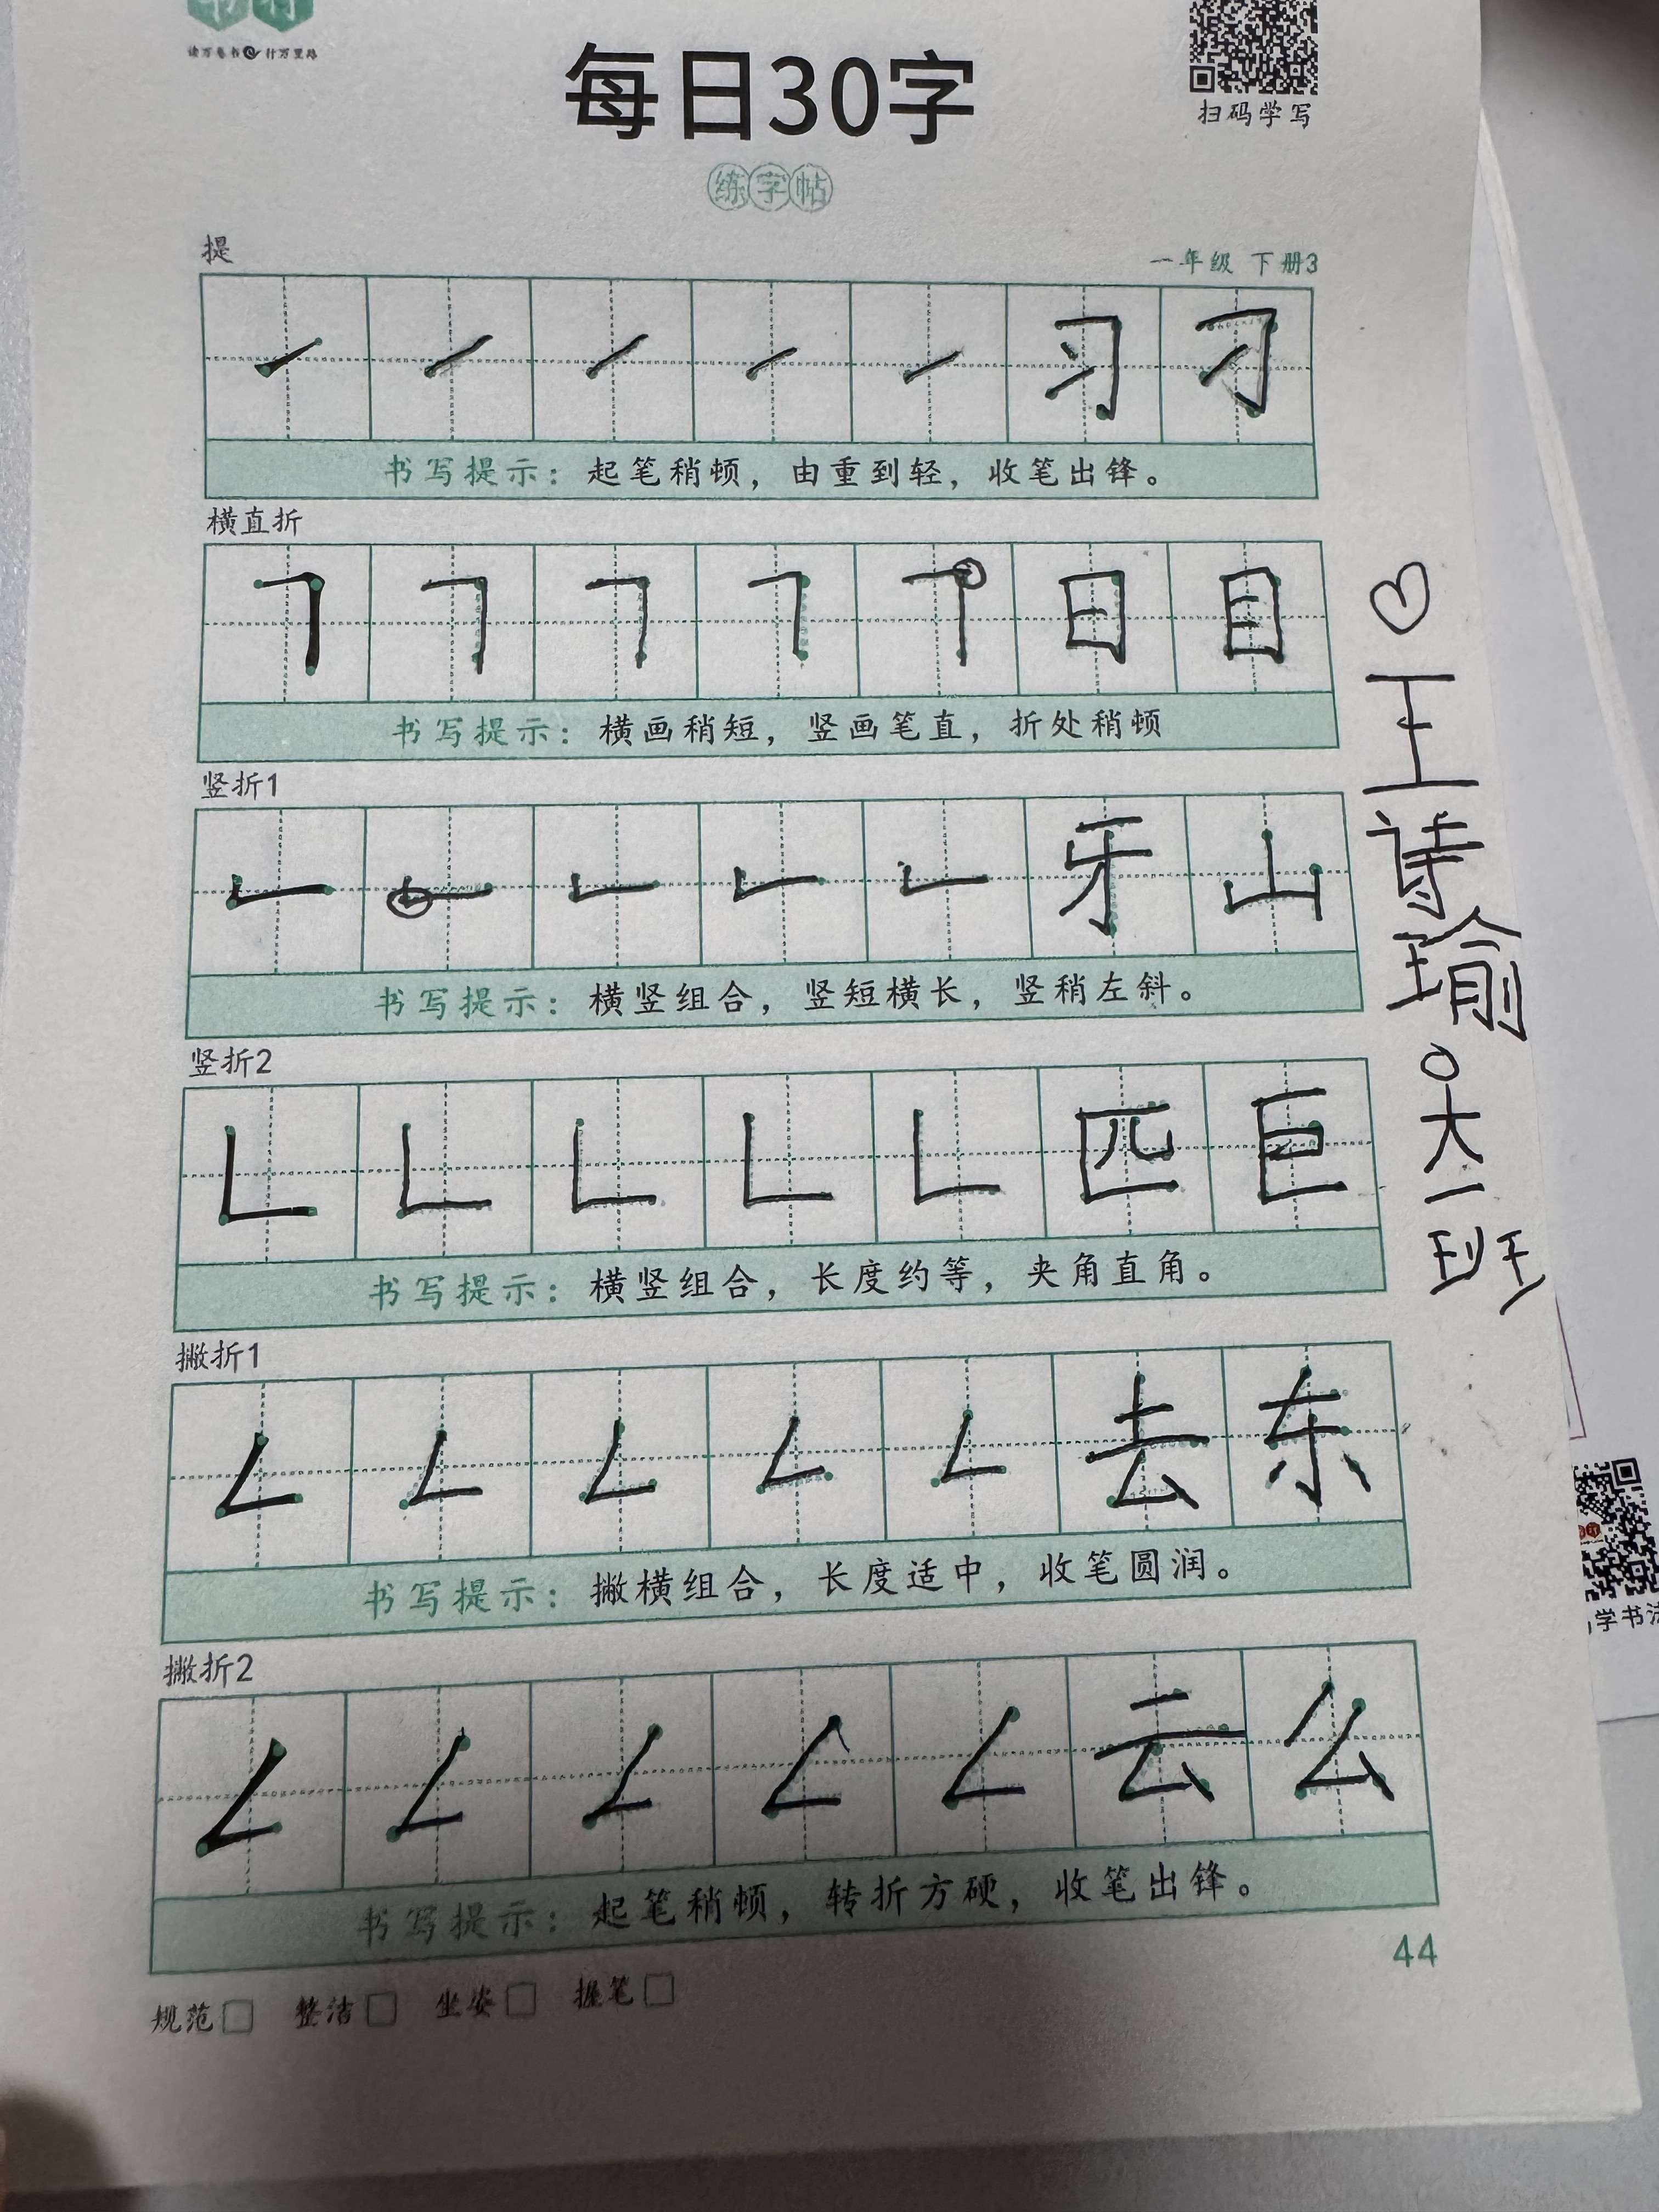 读万卷书 行万里路
每日30字
扫码学写
练字帖
提
一年级 下册3
习 刁
书写提示：起笔稍顿，由重到轻，收笔出锋。
横直折
日 目
书写提示：横画稍短，竖画笔直，折处稍顿
竖折1
牙 山
书写提示：横竖组合，竖短横长，竖稍左斜。
竖折2
匹 巨
书写提示：横竖组合，长度约等，夹角直角。
撇折1
去 东
书写提示：撇横组合，长度适中，收笔圆润。
撇折2
云 么
书写提示：起笔稍顿，转折方硬，收笔出锋。
44
规范□ 整洁□ 坐姿□ 握笔□
王诗瑜
大一班
学书法